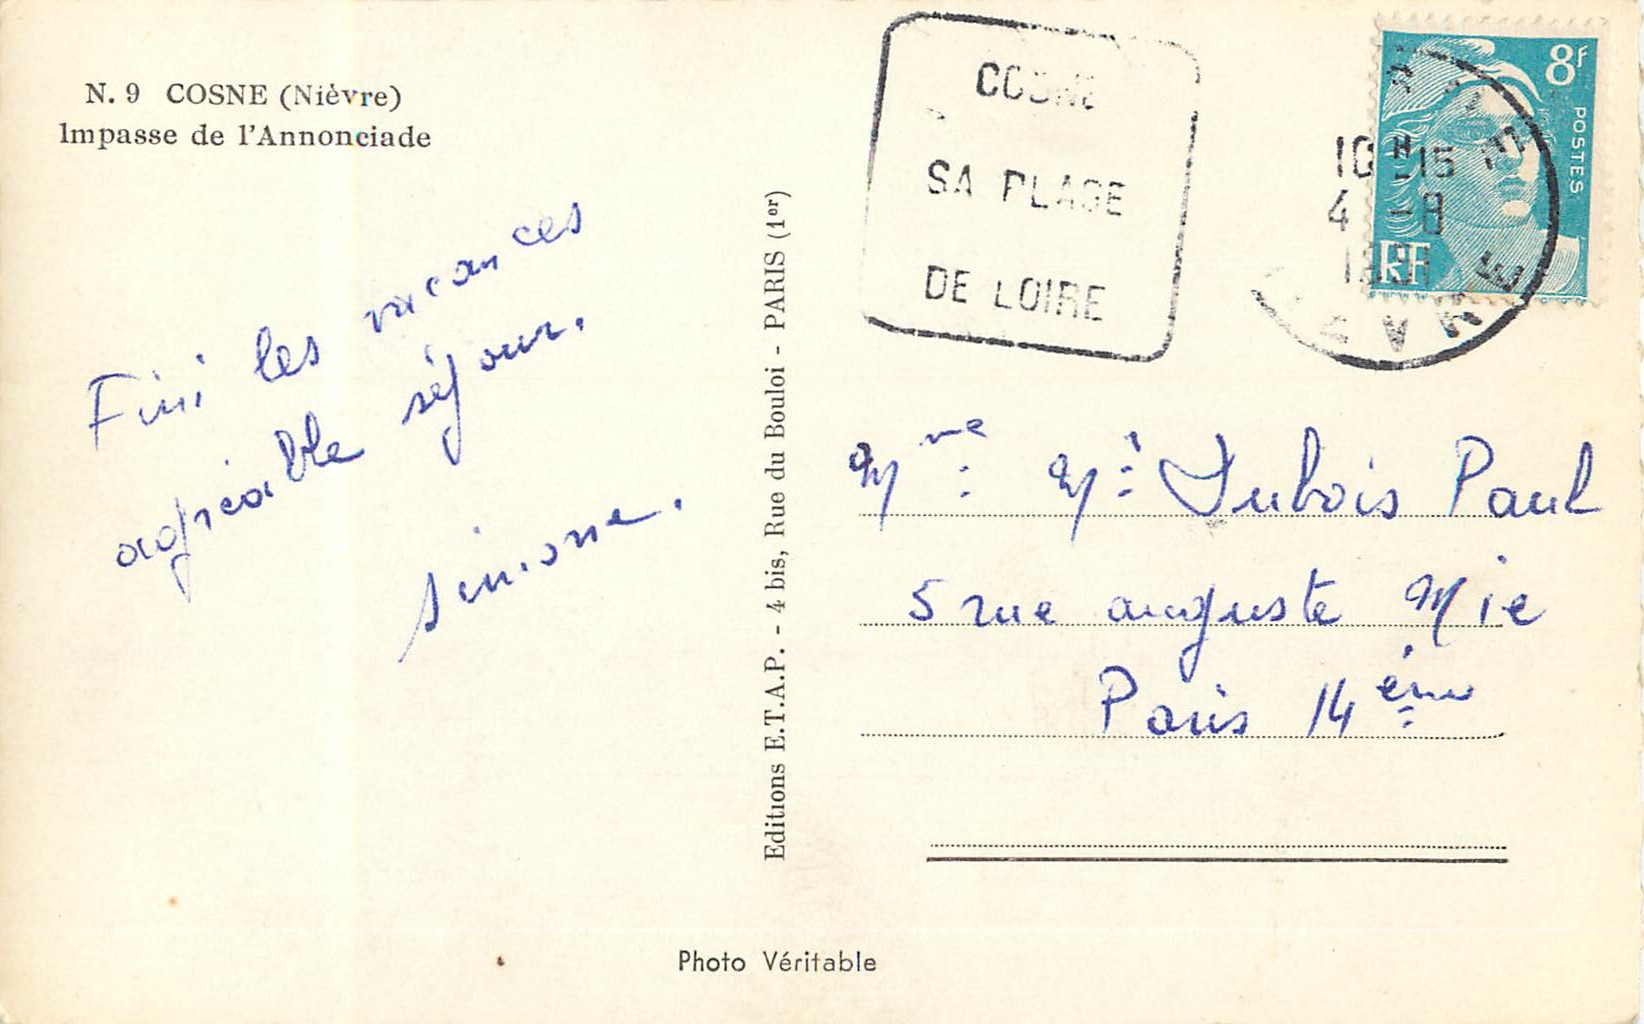 N. 9 COSNE (Nièvre)
Impasse de l'Annonciade
Fini les vacances
agréable séjour.
Simone.
Editions E.T.A.P. - 4 bis, Rue du Bouloi - PARIS (1er)
COSNE
SA PLAGE
DE LOIRE
8F
POSTES
RF
10 H 15
4 -8
NIEVRE
Mme Mr Dubois Paul
5 rue auguste Mie
Paris 14ème
Photo Véritable